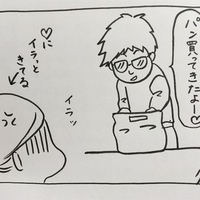 パン買ってきたよー♡
イラッ
♡に
イラっと
きてる